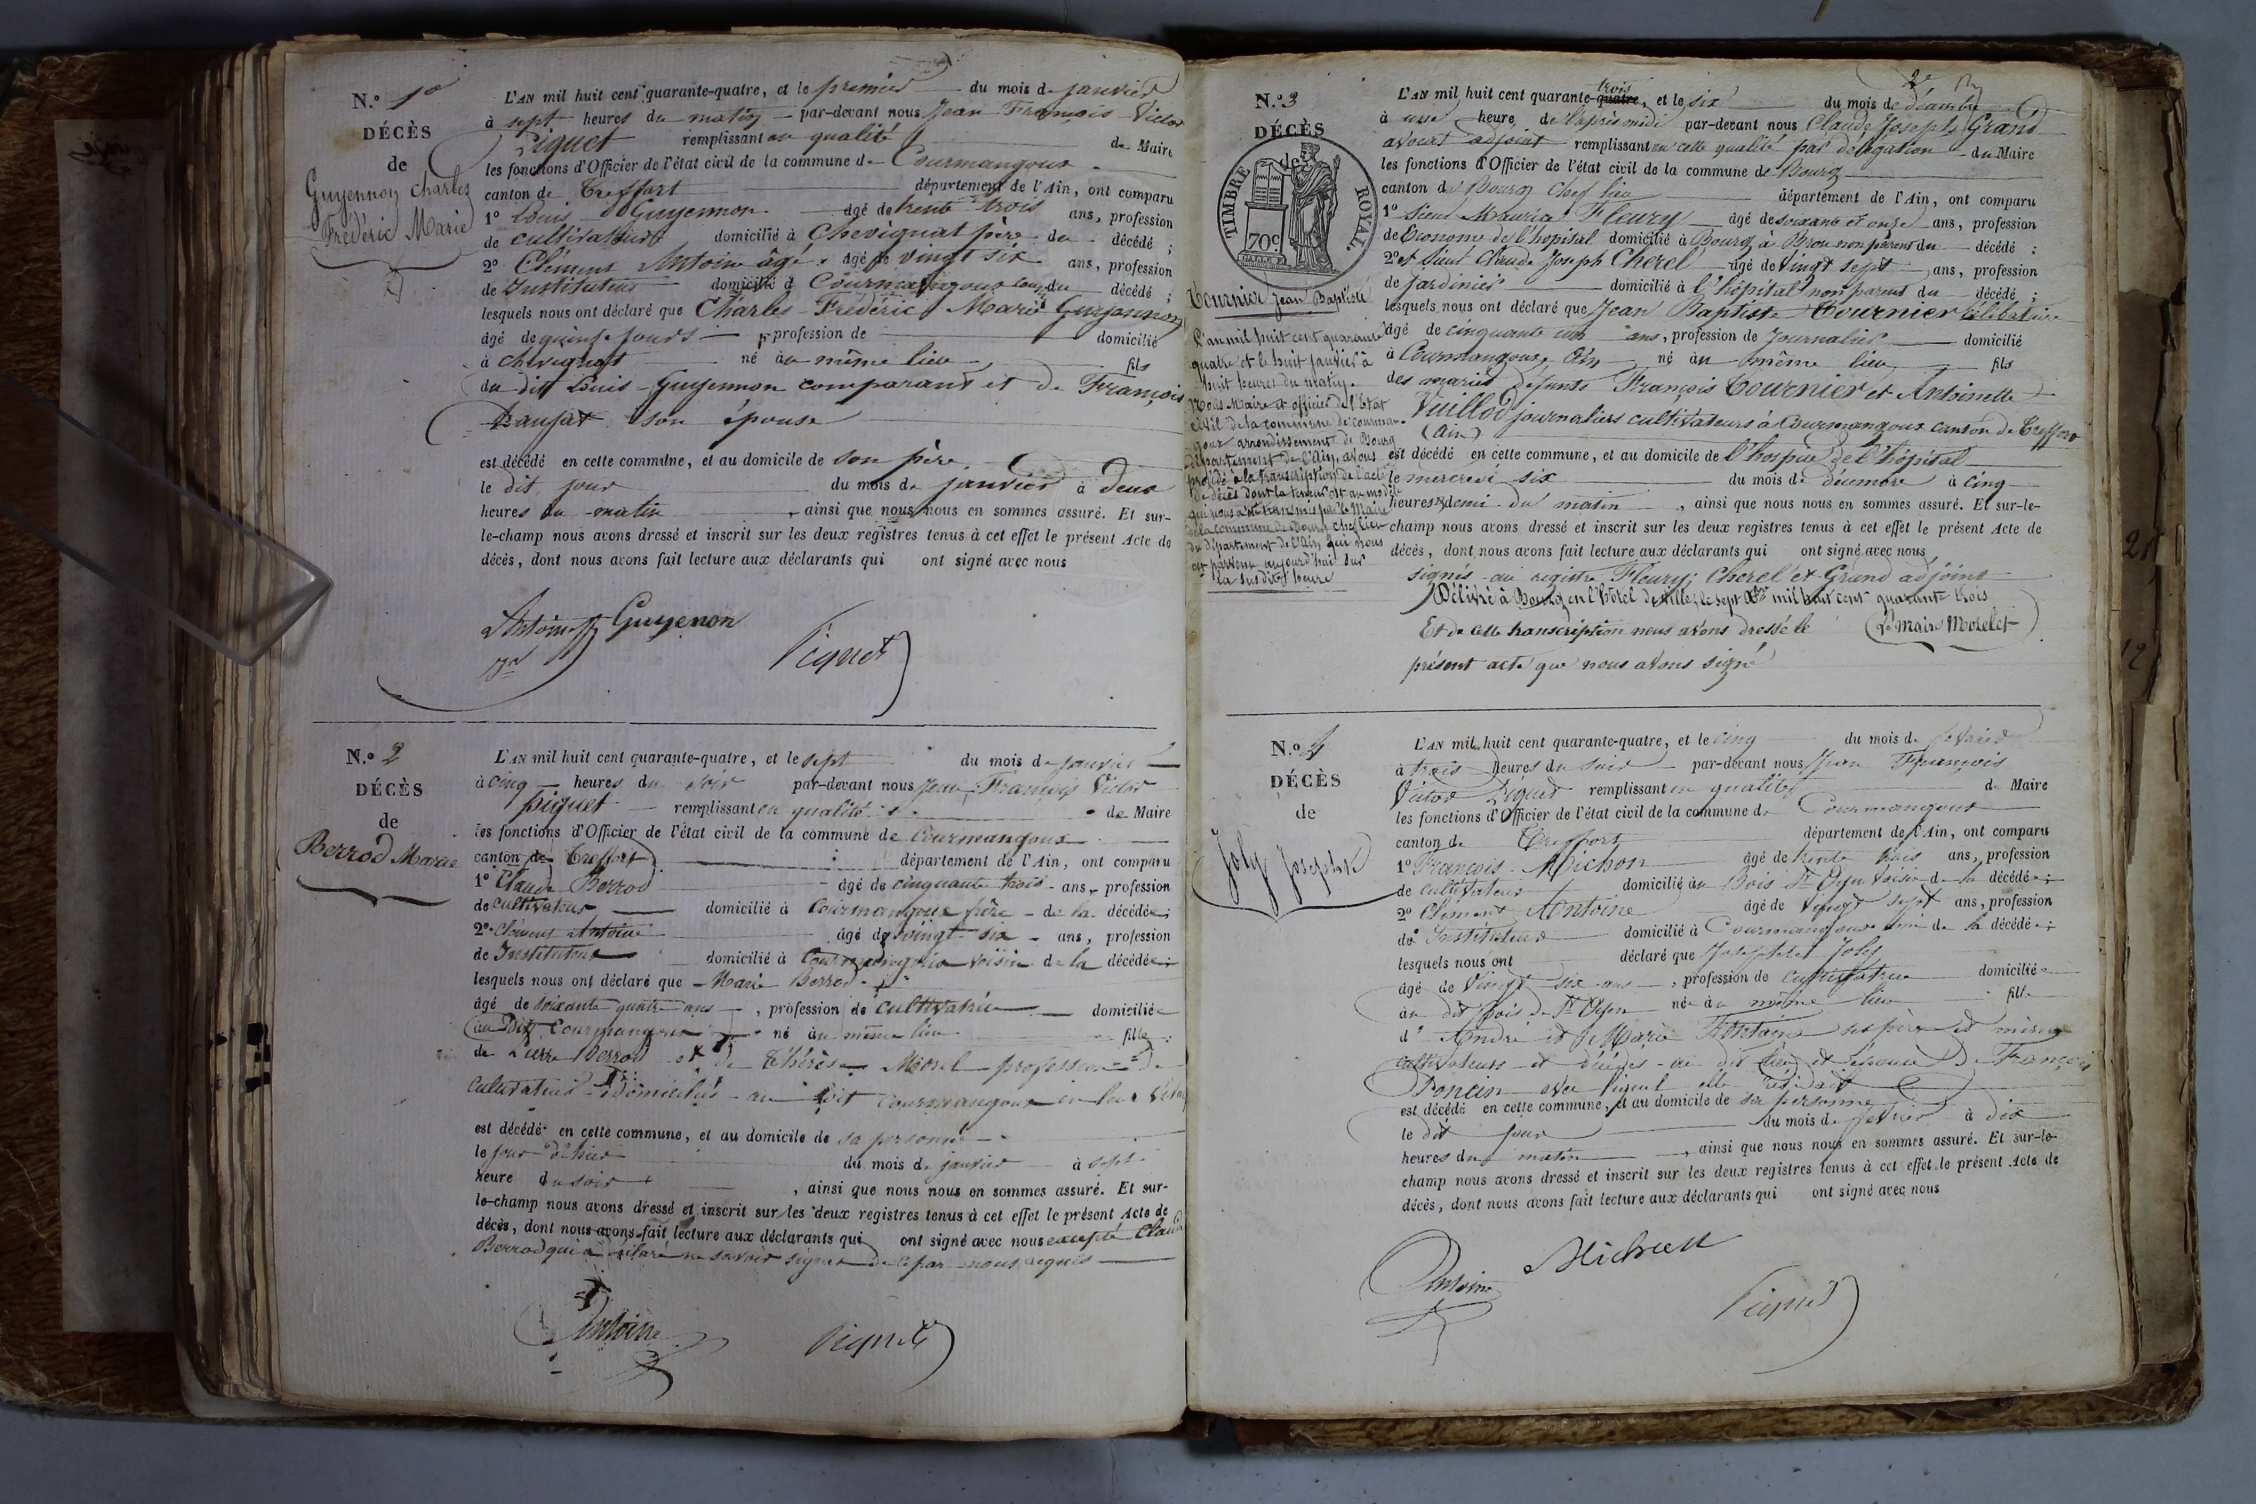 N.º 1er
DÉCÈS
de
Guyennon Charles
Frédéric Marie
L'AN mil huit cent quarante-quatre, et le premier du mois de janvier
à sept heures du matin par-devant nous Jean François Victor
Piquet remplissant en qualité de Maire
les fonctions d'Officier de l'état civil de la commune de Courmangoux
canton de Treffort département de l'Ain, ont comparu
1º Louis Guyennon âgé de trente trois ans, profession
de cultivateur domicilié à Chevignat père du décédé ;
2º Clément Antoine âgé âgé de vingt six ans, profession
de Instituteur domicilié à Courmangoux du décédé ;
lesquels nous ont déclaré que Charles Frédéric Marie Guyennon
âgé de quinze jours profession de domicilié
à Chevignat né au même lieu fils
du dit Louis Guyennon comparant et de François
son épouse
est décédé en cette commune, et au domicile de son père
le dit jour du mois de janvier à deux
heures du matin, ainsi que nous nous en sommes assuré. Et sur-
le-champ nous avons dressé et inscrit sur les deux registres tenus à cet effet le présent Acte de
décès, dont nous avons fait lecture aux déclarants qui ont signé avec nous
Antoine Guyenon
Piquet
N.º 2
DÉCÈS
de
Berrod Marie
L'AN mil huit cent quarante-quatre, et le sept du mois de janvier
à cinq heures du soir par-devant nous Jean François Victor
piquet remplissant en qualité de Maire
les fonctions d'Officier de l'état civil de la commune de Courmangoux
canton de Treffort département de l'Ain, ont comparu
1º Claude Berrod âgé de cinquante trois ans, profession
de cultivateur domicilié à Courmangoux frère de la décédée ;
2º Clément Antoine âgé de vingt six ans, profession
de Instituteur domicilié à Courmangoux voisin de la décédée ;
lesquels nous ont déclaré que Marie Berrod
âgé de soixante quatre ans, profession de cultivatrice domiciliée
au dit Courmangoux né au même lieu fille
de Pierre Berrod et de Thérèse Morel profession de
cultivateurs domiciliés au dit Courmangoux
est décédé en cette commune, et au domicile de sa personne
le jour d'hier du mois de janvier à sept
heure du soir, ainsi que nous nous en sommes assuré. Et sur-
le-champ nous avons dressé et inscrit sur les deux registres tenus à cet effet le présent Acte de
décès, dont nous avons fait lecture aux déclarants qui ont signé avec nous excepté Claude
Berrod qui a déclaré ne savoir signer de ce par nous requis
Antoine
Piquet
N.º 3
DÉCÈS
de
TIMBRE ROYAL
70c
Tournier Jean Baptiste
L'an mil huit cent quarante
quatre et le huit janvier à
huit heures du matin
Nous Maire et officier de l'Etat
civil de la commune de courman-
goux arrondissement de Bourg
département de l'Ain, avons
procédé à la transcription de l'acte
de décès dont la teneur est au modèle
qui nous a été transmis par le Maire
de la commune de Bourg chef lieu
du département de l'Ain qui nous
est parvenu aujourd'hui sur
la susdite heure
2e
L'AN mil huit cent quarante-quatre trois, et le six du mois de décembre
à une heure de l'après midi par-devant nous Claude Joseph Grand
adjoint remplissant en cette qualité par délégation du Maire
les fonctions d'Officier de l'état civil de la commune de Bourg
canton de Bourg Chef lieu département de l'Ain, ont comparu
1º Sieur Fleury âgé de soixante et onze ans, profession
de Econome de l'hopital domicilié à Bourg à Brou non parent du décédé :
2º et Sieur Claude Joseph Cherel âgé de vingt sept ans, profession
de jardinier domicilié à l'hôpital non parent du décédé ;
lesquels nous ont déclaré que Jean Baptiste Tournier célibataire
âgé de cinquante un ans, profession de Journalier domicilié
à Courmangoux, Ain né au même lieu fils
des mariés défunts François Tournier et Antoinette
Vuillod journaliers cultivateurs à Courmangoux canton de Treffort
(Ain)
est décédé en cette commune, et au domicile de l'hospice de l'hôpital
le mercredi six du mois de décembre à cinq
heures & demi du matin, ainsi que nous nous en sommes assuré. Et sur-le-
champ nous avons dressé et inscrit sur les deux registres tenus à cet effet le présent Acte de
décès, dont nous avons fait lecture aux déclarants qui ont signé avec nous
signés au registre Fleury, Cherel et Grand adjoint
Délivré à Bourg en l'hôtel de ville, le sept Xbre mil huit cent quarante trois
Et de cette transcription nous avons dressé le Le Maire Morelet
présent acte que nous avons signé
N.º 4
DÉCÈS
de
Joly Josephte
L'AN mil huit cent quarante-quatre, et le cinq du mois de février
à trois heures du soir par-devant nous Jean François
Victor Piquet remplissant en qualité de Maire
les fonctions d'Officier de l'état civil de la commune de Courmangoux
canton de Treffort département de l'Ain, ont comparu
1º François Michon âgé de trente trois ans, profession
de cultivateur domicilié au Bois St Oyen voisin de la décédée ;
2º Clément Antoine âgé de vingt sept ans, profession
de Instituteur domicilié à Courmangoux ami de la décédée ;
lesquels nous ont déclaré que Josephte Joly
âgé de vingt six ans, profession de cultivatrice domiciliée
au dit bois de St Oyen née au même lieu fille
d' André et de Marie Fontaine ses père et mère
cultivateurs et décédés au dit lieu et épouse de François
Poncin avec lequel elle résidait
est décédé en cette commune, et au domicile de sa personne
le dit jour du mois de février à dix
heures du matin, ainsi que nous nous en sommes assuré. Et sur-le-
champ nous avons dressé et inscrit sur les deux registres tenus à cet effet le présent Acte de
décès, dont nous avons fait lecture aux déclarants qui ont signé avec nous
Antoine Michon
Piquet